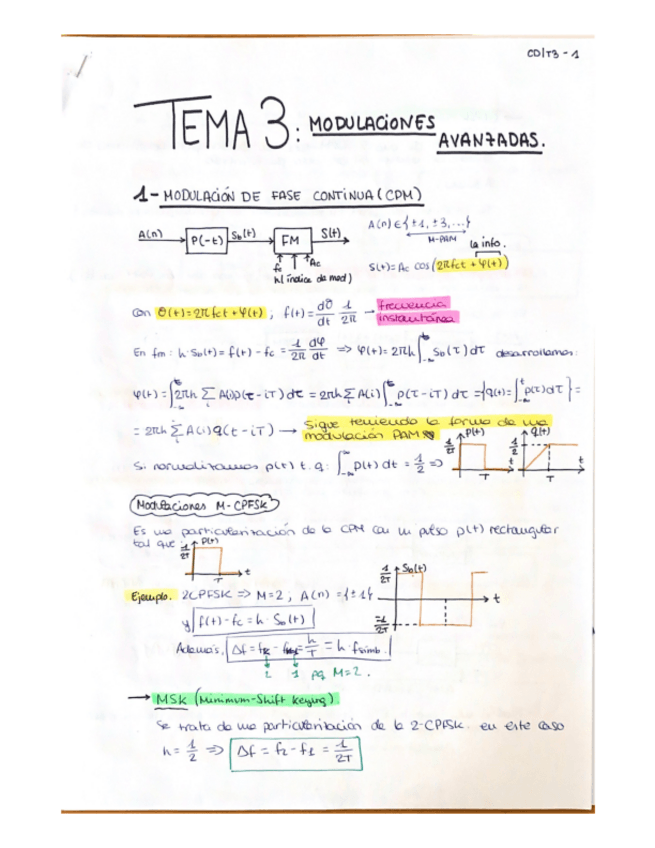 CD/T3 - 1
TEMA 3: MODULACIONES AVANZADAS.
1- MODULACIÓN DE FASE CONTINUA (CPM)
A(n) P(-t) So(t) FM S(t)
fc Ac
h (índice de mod)
A(n) ∈ {±1, ±3, ...}
M-PAM
la info.
S(t) = Ac cos(2πfct + φ(t))
Con Θ(t) = 2πfct + φ(t) ; f(t) = dΘ/dt 1/2π → frecuencia instantánea
En fm: h·So(t) = f(t) - fc = 1/2π dφ/dt ⇒ φ(t) = 2πh ∫_{-∞}^{t} So(τ) dτ desarrollamos:
φ(t) = ∫_{-∞}^{t} 2πh Σ_i A(i)p(τ-iT) dτ = 2πh Σ_i A(i) ∫_{-∞}^{t} p(τ-iT) dτ = {q(t) = ∫_{-∞}^{t} p(τ) dτ} =
= 2πh Σ_i A(i) q(t-iT) → Sigue teniendo la forma de una modulación PAM
Si normalizamos p(t) t.q: ∫_{-∞}^{∞} p(t) dt = 1/2 ⇒
1/2T p(t) T t
1/2 q(t) T t
Modulaciones M-CPFSK
Es una particularización de la CPM con un pulso p(t) rectangular
tal que: 1/2T p(t) T t
Ejemplo. 2CPFSK ⇒ M=2 ; A(n) = {±1}
1/2T So(t) t -1/2T
y f(t) - fc = h·So(t)
Además, Δf = f2 - = h/T = h·fsimb.
2 1 pq M=2.
→ MSK (Minimum-Shift Keying)
Se trata de una particularización de la 2-CPFSK. en este caso
h = 1/2 ⇒ Δf = f2 - f1 = 1/2T